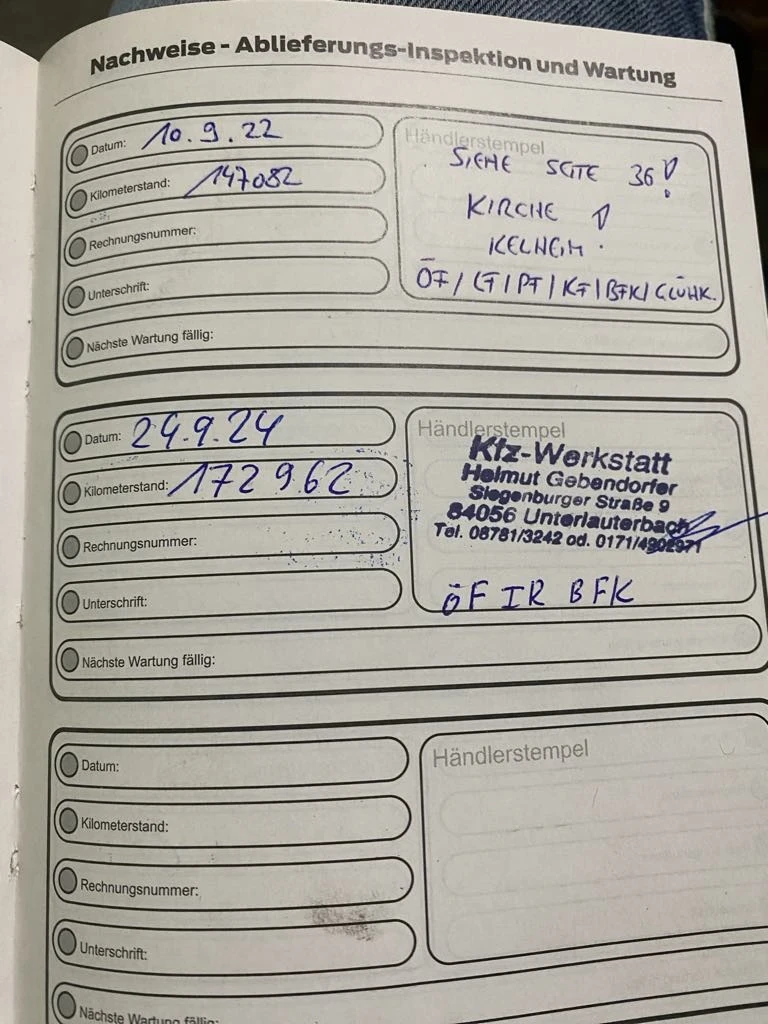 Nachweise - Ablieferungs-Inspektion und Wartung
Datum: 10.9.22
Kilometerstand: 147082
Rechnungsnummer:
Unterschrift:
Händlerstempel
SIEHE SEITE 36!
KIRCHE
KELHEIM.
ÖF/ LF/PF/ KF/BFK/ GLÜHK.
Nächste Wartung fällig:
Datum: 24.9.24
Kilometerstand: 172962
Rechnungsnummer:
Unterschrift:
Händlerstempel
Kfz-Werkstatt
Helmut Gebendorfer
Siegenburger Straße 9
84056 Unterlauterbach
Tel. 08781/3242 od. 0171/4902971
ÖF IR BFK
Nächste Wartung fällig:
Datum:
Kilometerstand:
Rechnungsnummer:
Unterschrift:
Händlerstempel
Nächste Wartung fällig: